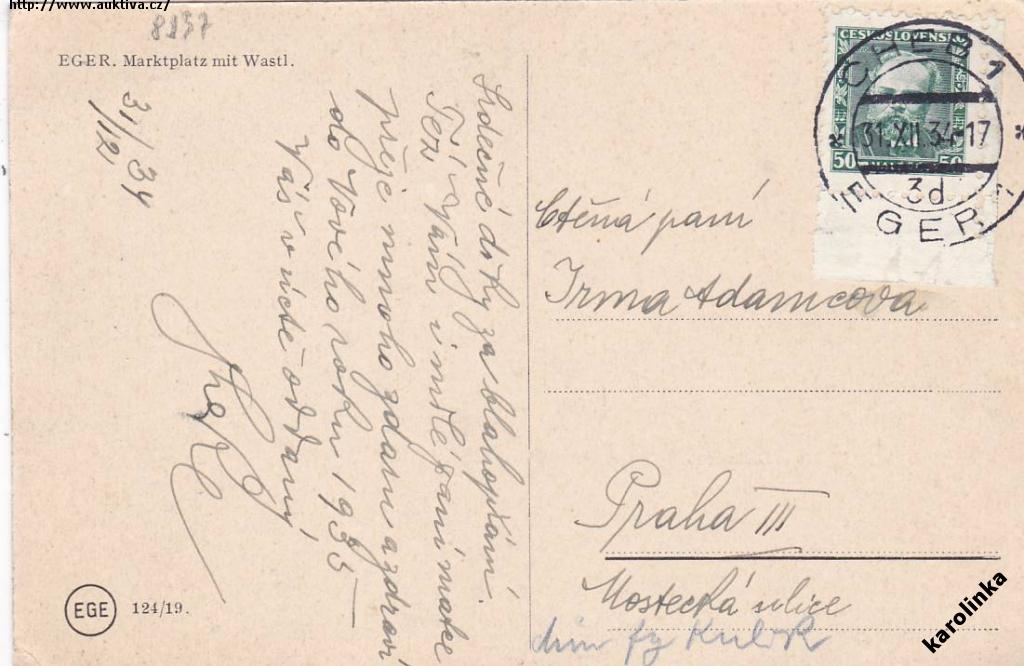 http://www.auktiva.cz/
8137
EGER. Marktplatz mit Wastl.
31/12 34
Srdečné díky za blahopřání.
Též Vám i milé paní matce
přeje mnoho zdaru a zdraví
do Nového roku 1935 –
Váš v úctě oddaný
EGE 124/19.
ČESKOSLOVENSKO
50 50
CHEB 1
31.XII.34-17
3d
EGER 1
Ctěná paní
Irma Adamcova
Praha III
Mostecká ulice
dům fy
karolinka